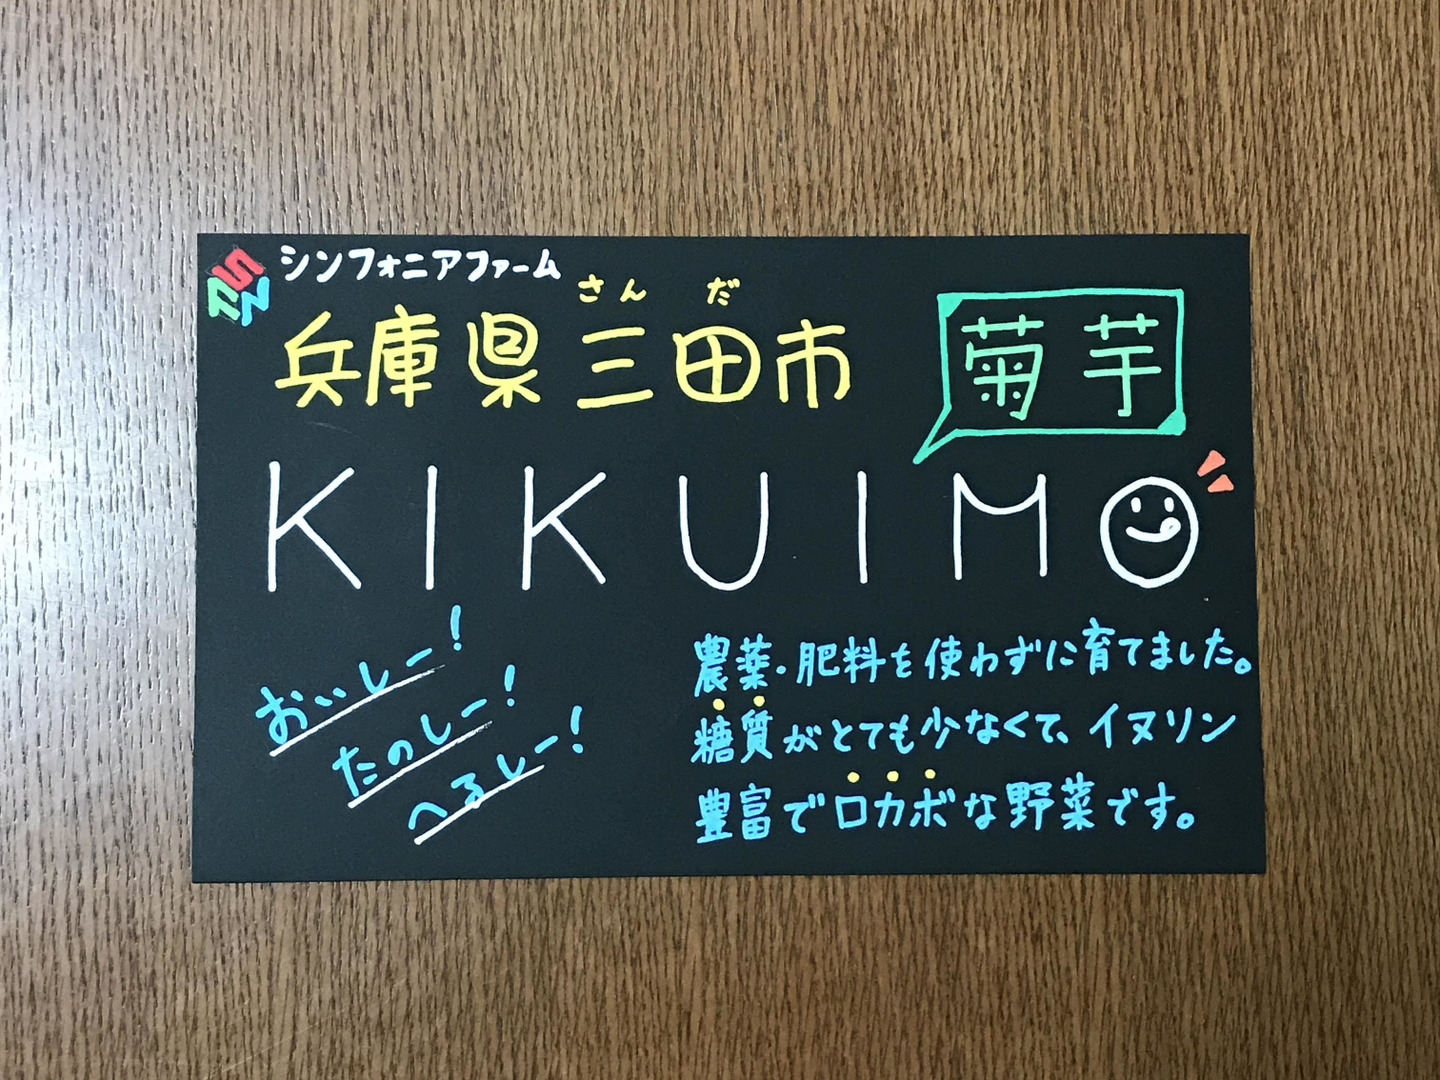 シンフォニアファーム
さんだ
兵庫県三田市
菊芋
KIKUIMO
おいしー!
たのしー!
へるしー!
農薬・肥料を使わずに育てました。
糖質がとても少なくて、イヌリン
豊富でロカボな野菜です。